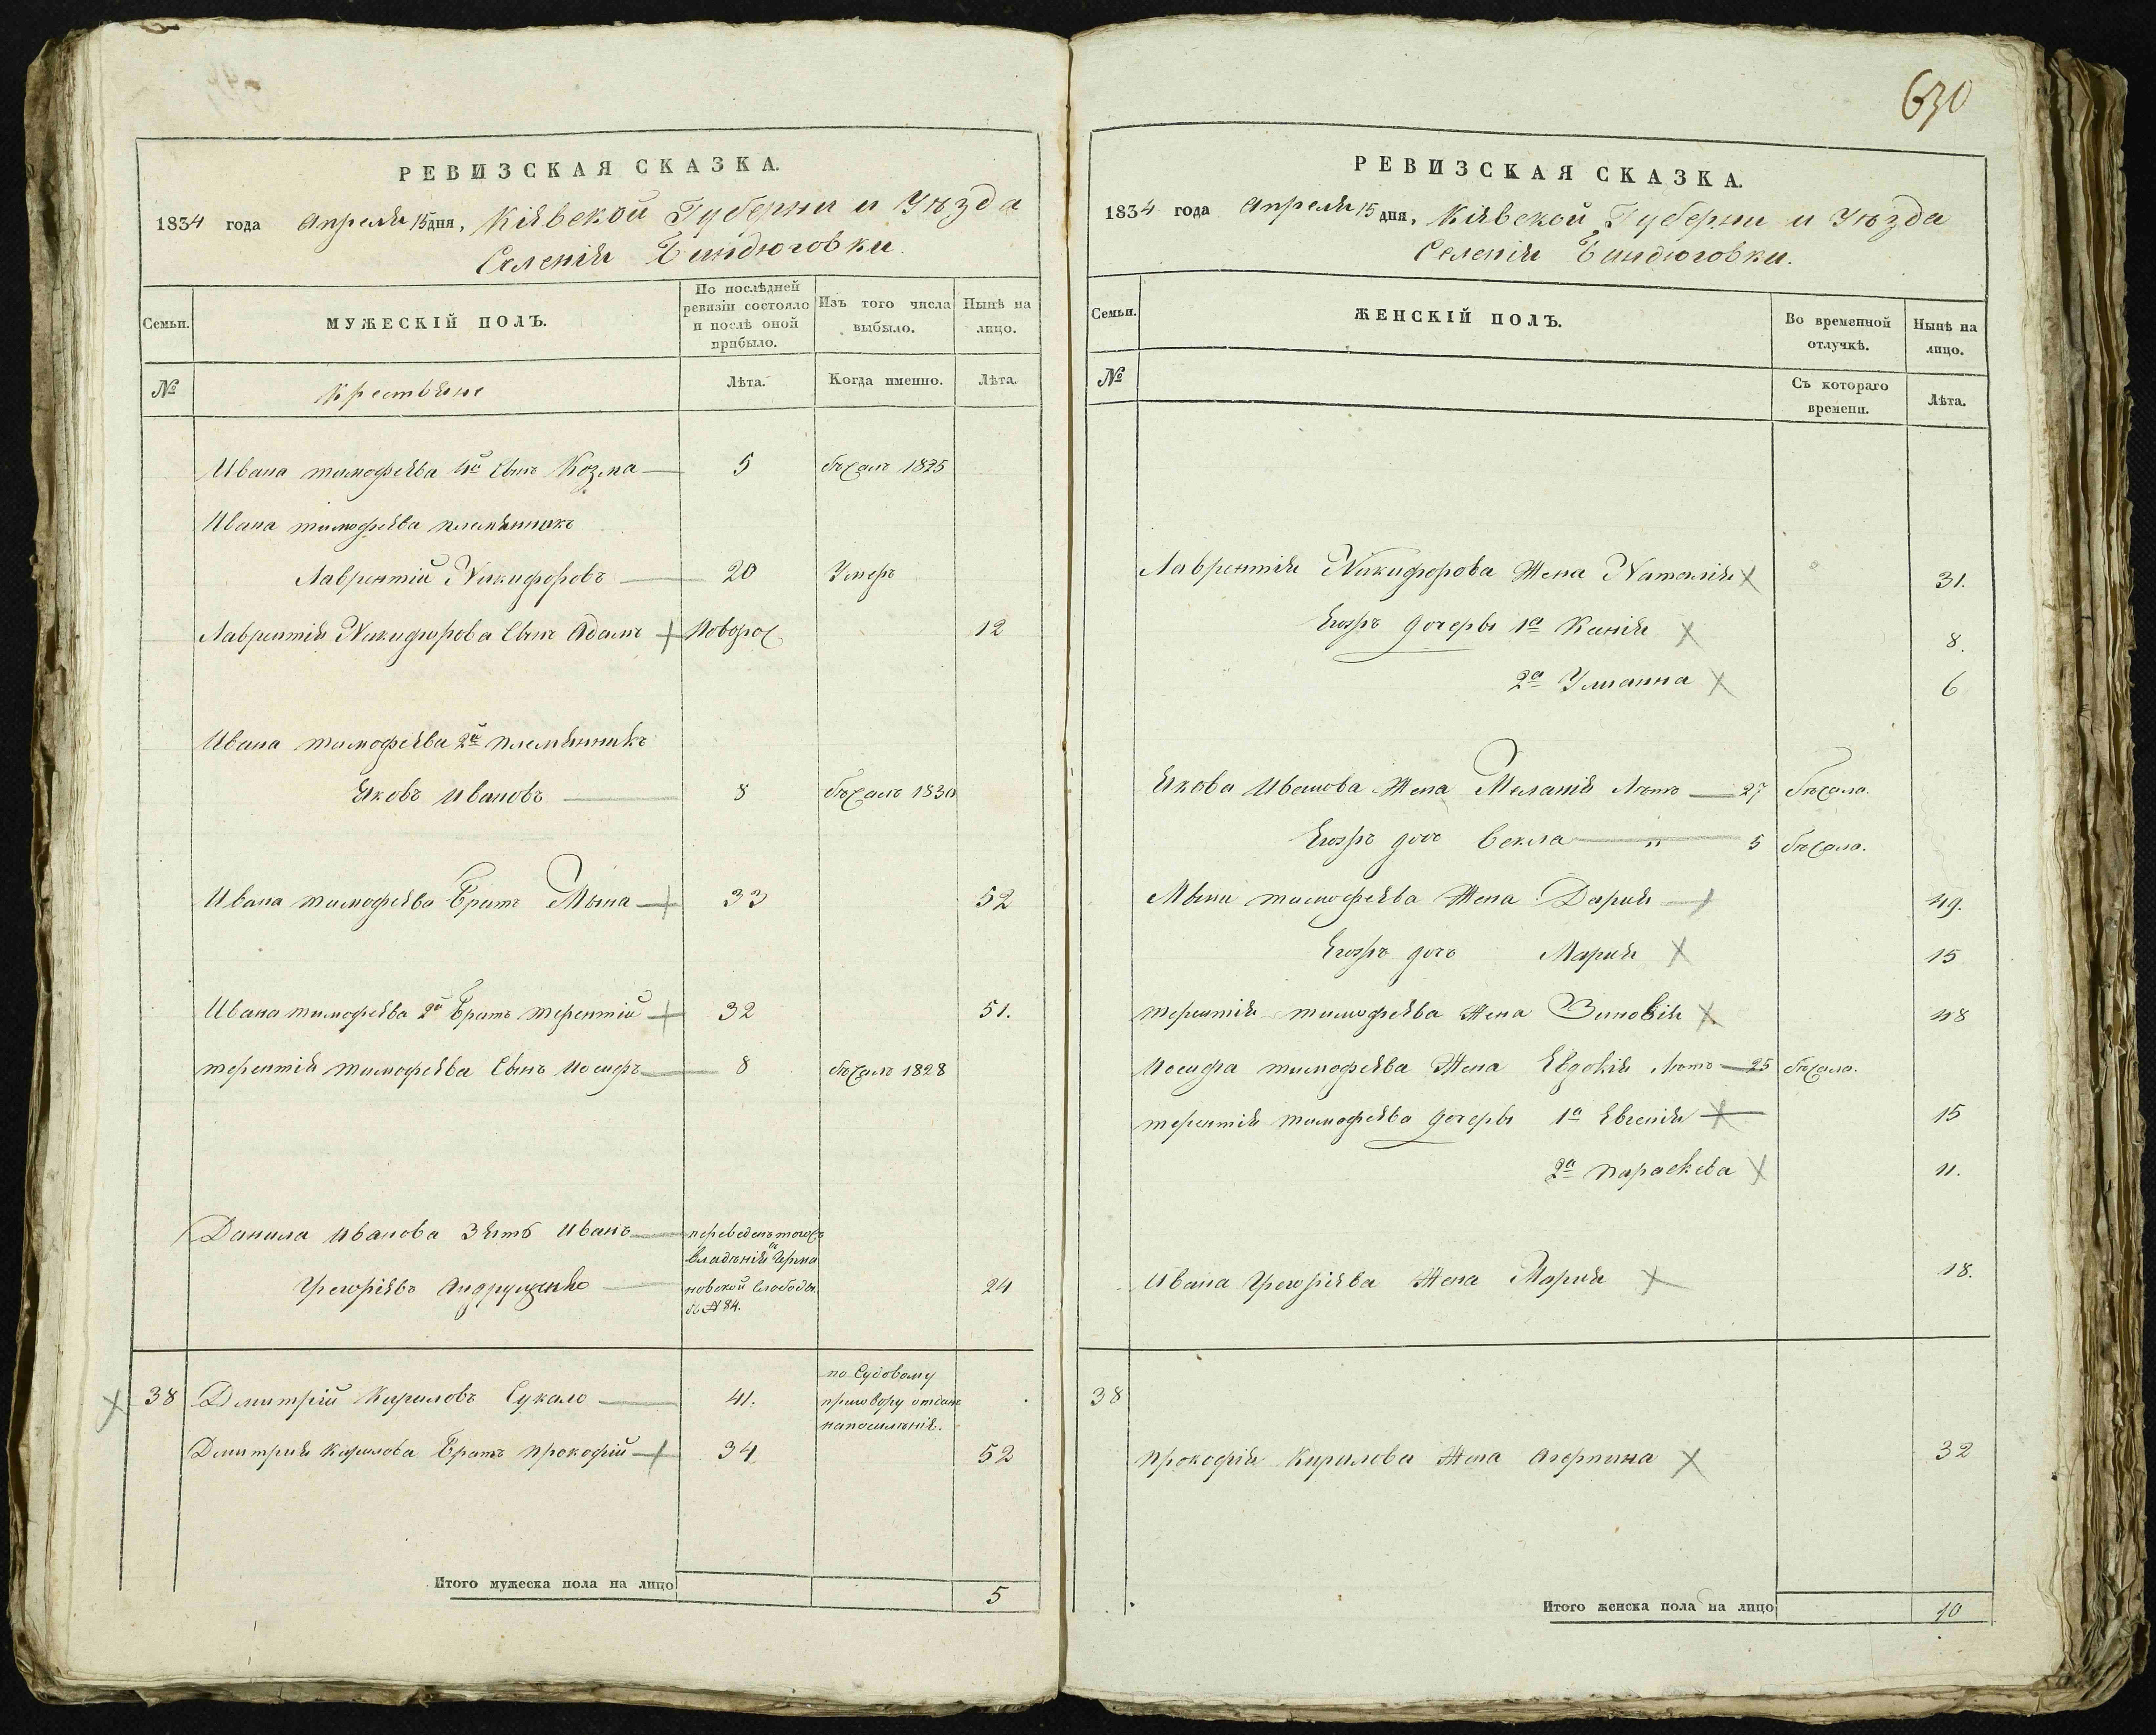 630
РЕВИЗСКАЯ СКАЗКА.
1834 года Апреля 15 дня, Кіявской Губерни и Уѣзда
Селенія Биндюговки.
Семьи.
МУЖЕСКІЙ ПОЛЪ.
По послѣдней ревизіи состояло и послѣ оной прибыло.
Изъ того числа выбыло.
Нынѣ на лицо.
№
Крестьяне
Лѣта.
Когда именно.
Лѣта.
Ивана тимофѣева 4й Сынъ Козма 5 бѣжалъ 1825
Ивана тимофѣева племянникъ
Лаврентій Никифоровъ 20 Умеръ
Лаврентія Никифорова Сынъ Адамъ новорож 12
Ивана тимофѣева 2й племянникъ
Яковъ Ивановъ 8 бѣжалъ 1830
Ивана тимофѣева Братъ Мына 33 52
Ивана тимофѣева 2й Братъ терентій 32 51.
терентія тимофѣева Сынъ Иосифъ 8 бѣжалъ 1828
Данила Иванова Зять Иванъ переведенъ тогожъ
владѣнія
Григоріевъ новской Слободы 24
№ 84.
38 Дмитрій Кириловъ Сукало 41. по Судовому
приговору отданъ
Дмитрия Кирилова Братъ прокофій 34 52
Итого мужеска пола на лицо 5
РЕВИЗСКАЯ СКАЗКА.
1834 года Апреля 15 дня, Кіявской Губерни и Уѣзда
Селенія Биндюговки.
Семьи.
ЖЕНСКІЙ ПОЛЪ.
Во временной отлучкѣ.
Нынѣ на лицо.
№
Съ котораго времени.
Лѣта.
Лаврентія Никифорова Жена Наталія 31.
Егожъ дочеры 1а Ксенія 8.
2а Улианна 6
Якова Иванова Жена Меланія Лѣтъ 27 бѣжала.
Егожъ дочь Векла " 5 бѣжала.
Мыны тимофѣева Жена Дария 49.
Егожъ дочь Мария 15
терентія тимофѣева Жена Зиновія 48
Иосифа тимофѣева Жена Евдокія Лѣтъ 25 бѣжала.
терентія тимофѣева дочеры 1а Евгенія 15
2а параскева 11.
Ивана Григоріева Жена Мария 18.
38
прокофія Кирилова Жена Агерпина 32
Итого женска пола на лицо 10